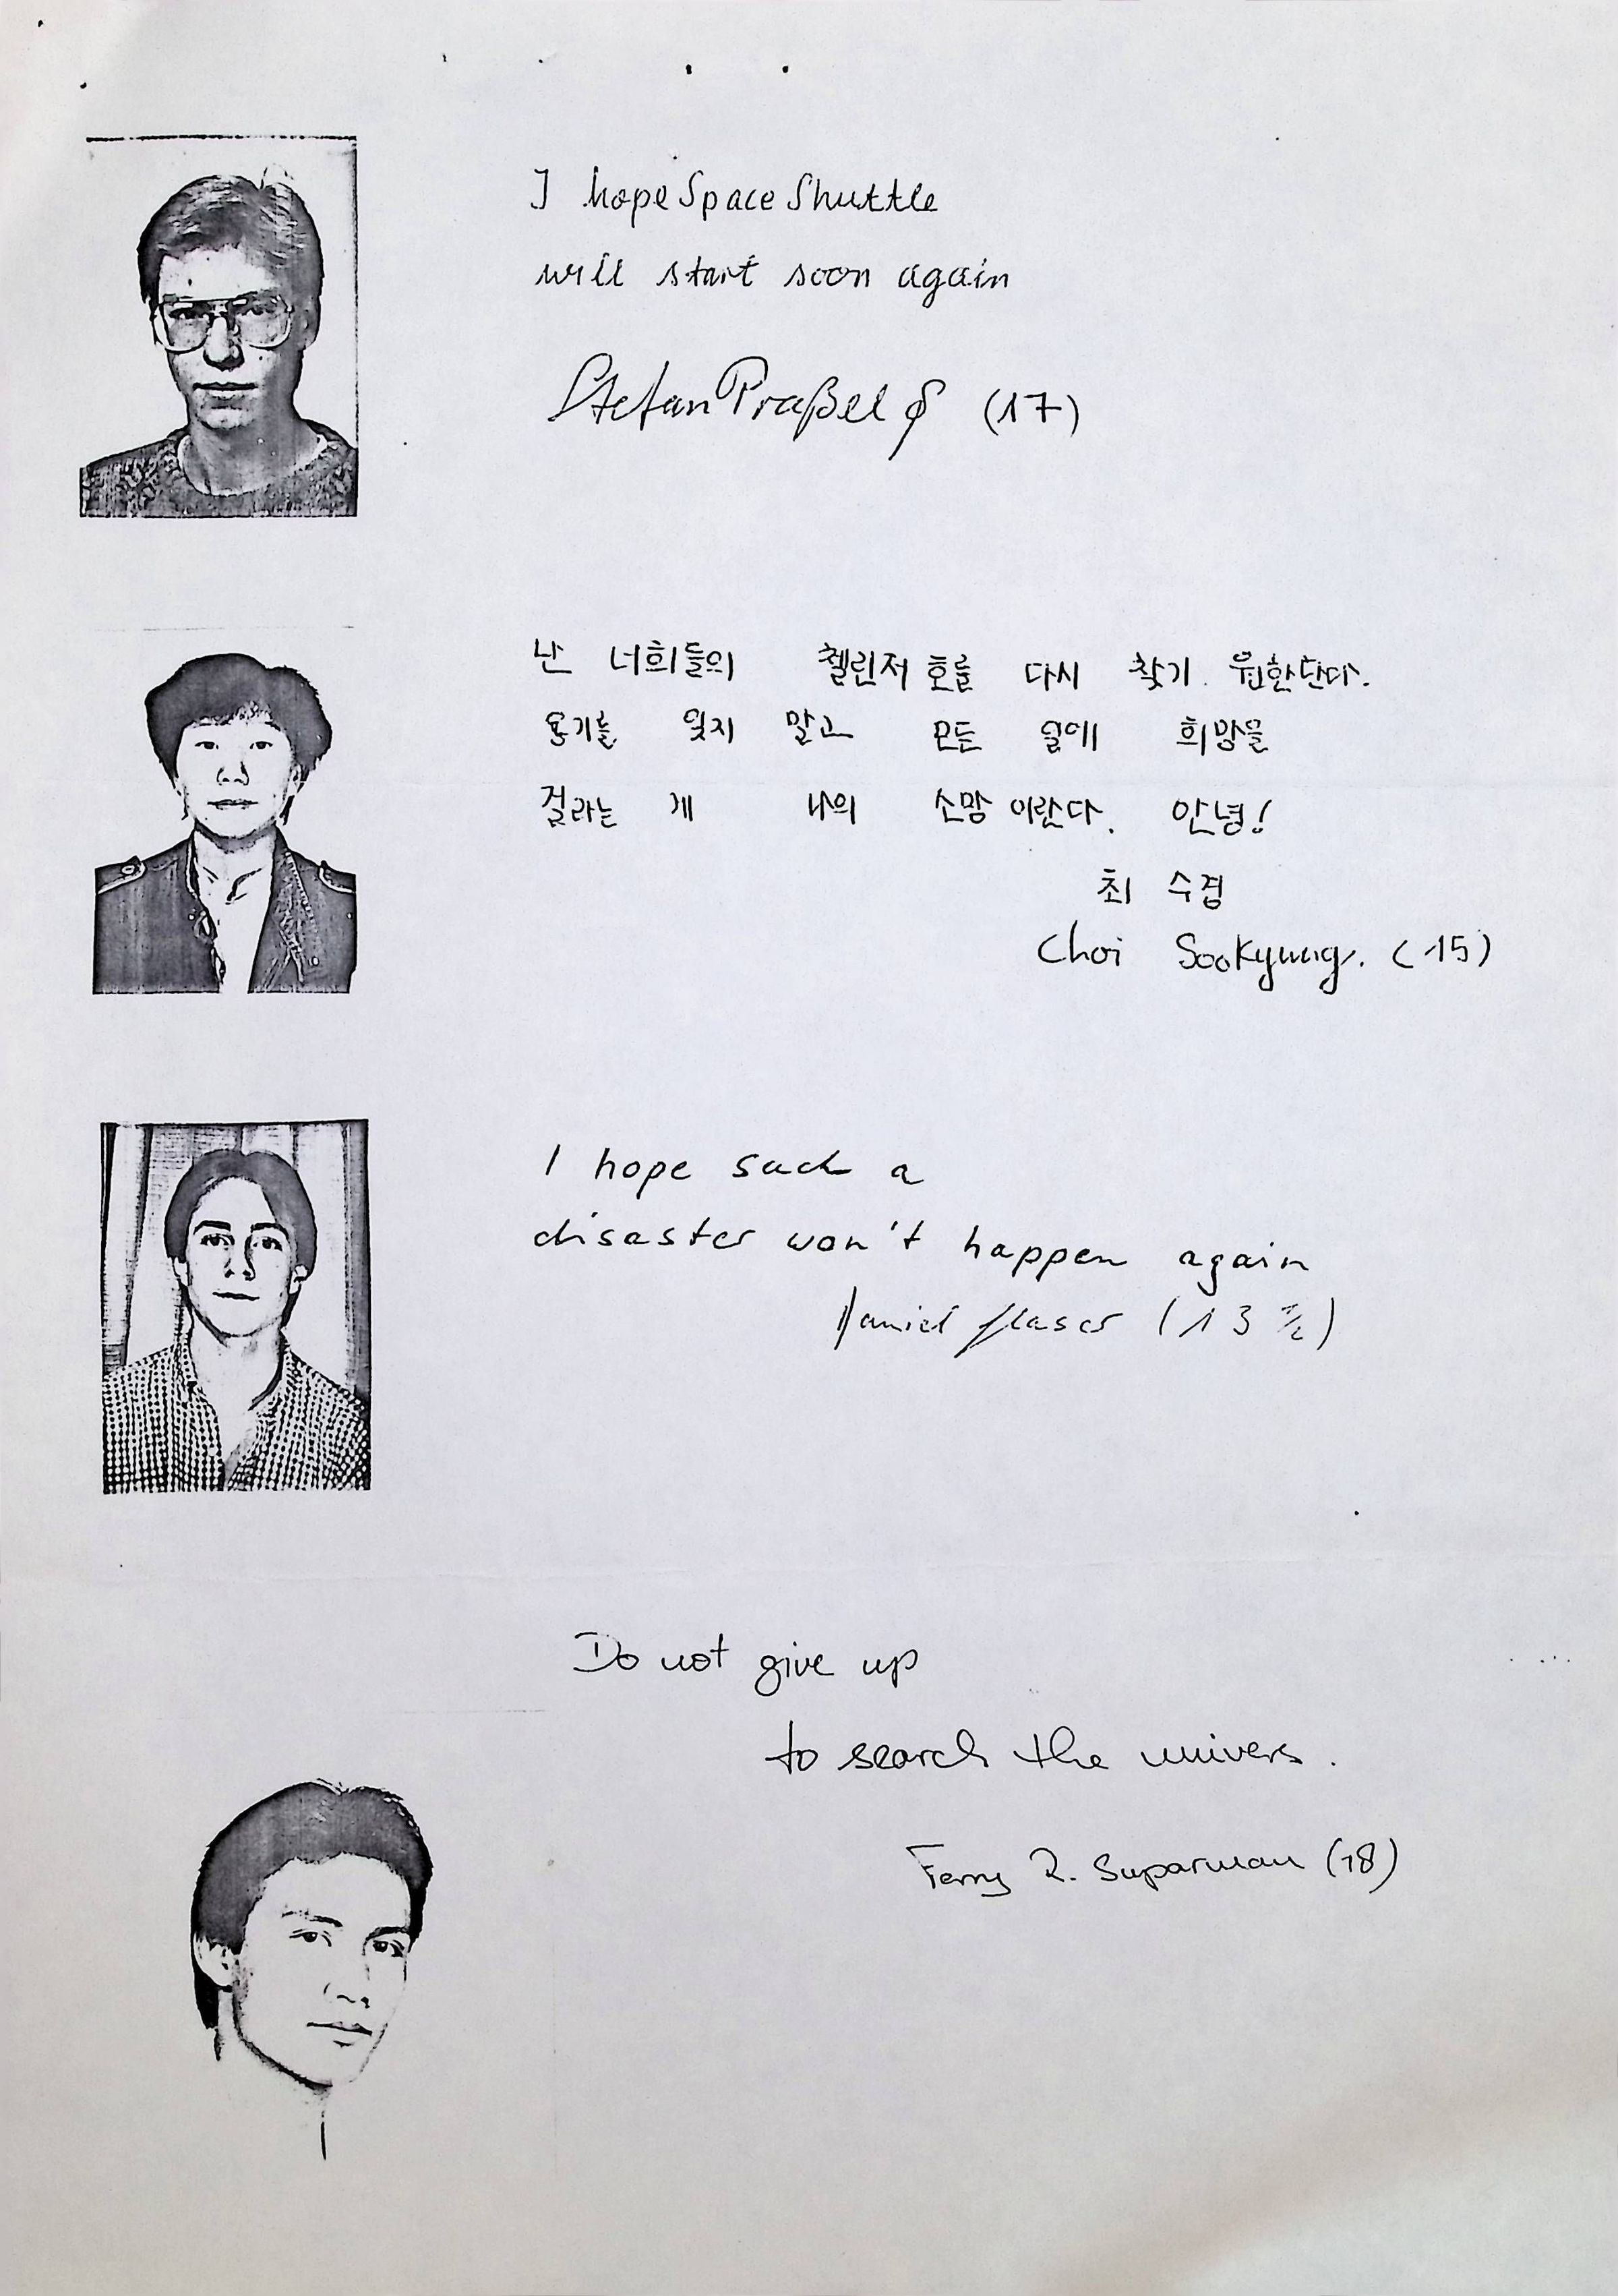 I hope Space Shuttle
will start soon again
Stefan Praßel (17)
난 너희들의 첼린저 호를 다시 찾기 원한단다.
용기를 잊지 말고 모든 일에 희망을
걸라는 게 나의 소망 이란다. 안녕!
최 수경
Choi Sookyung. (15)
I hope such a
disaster won't happen again
Daniel (13 1/2)
Do not give up
to search the univers.
Ferry R. Suparman (18)